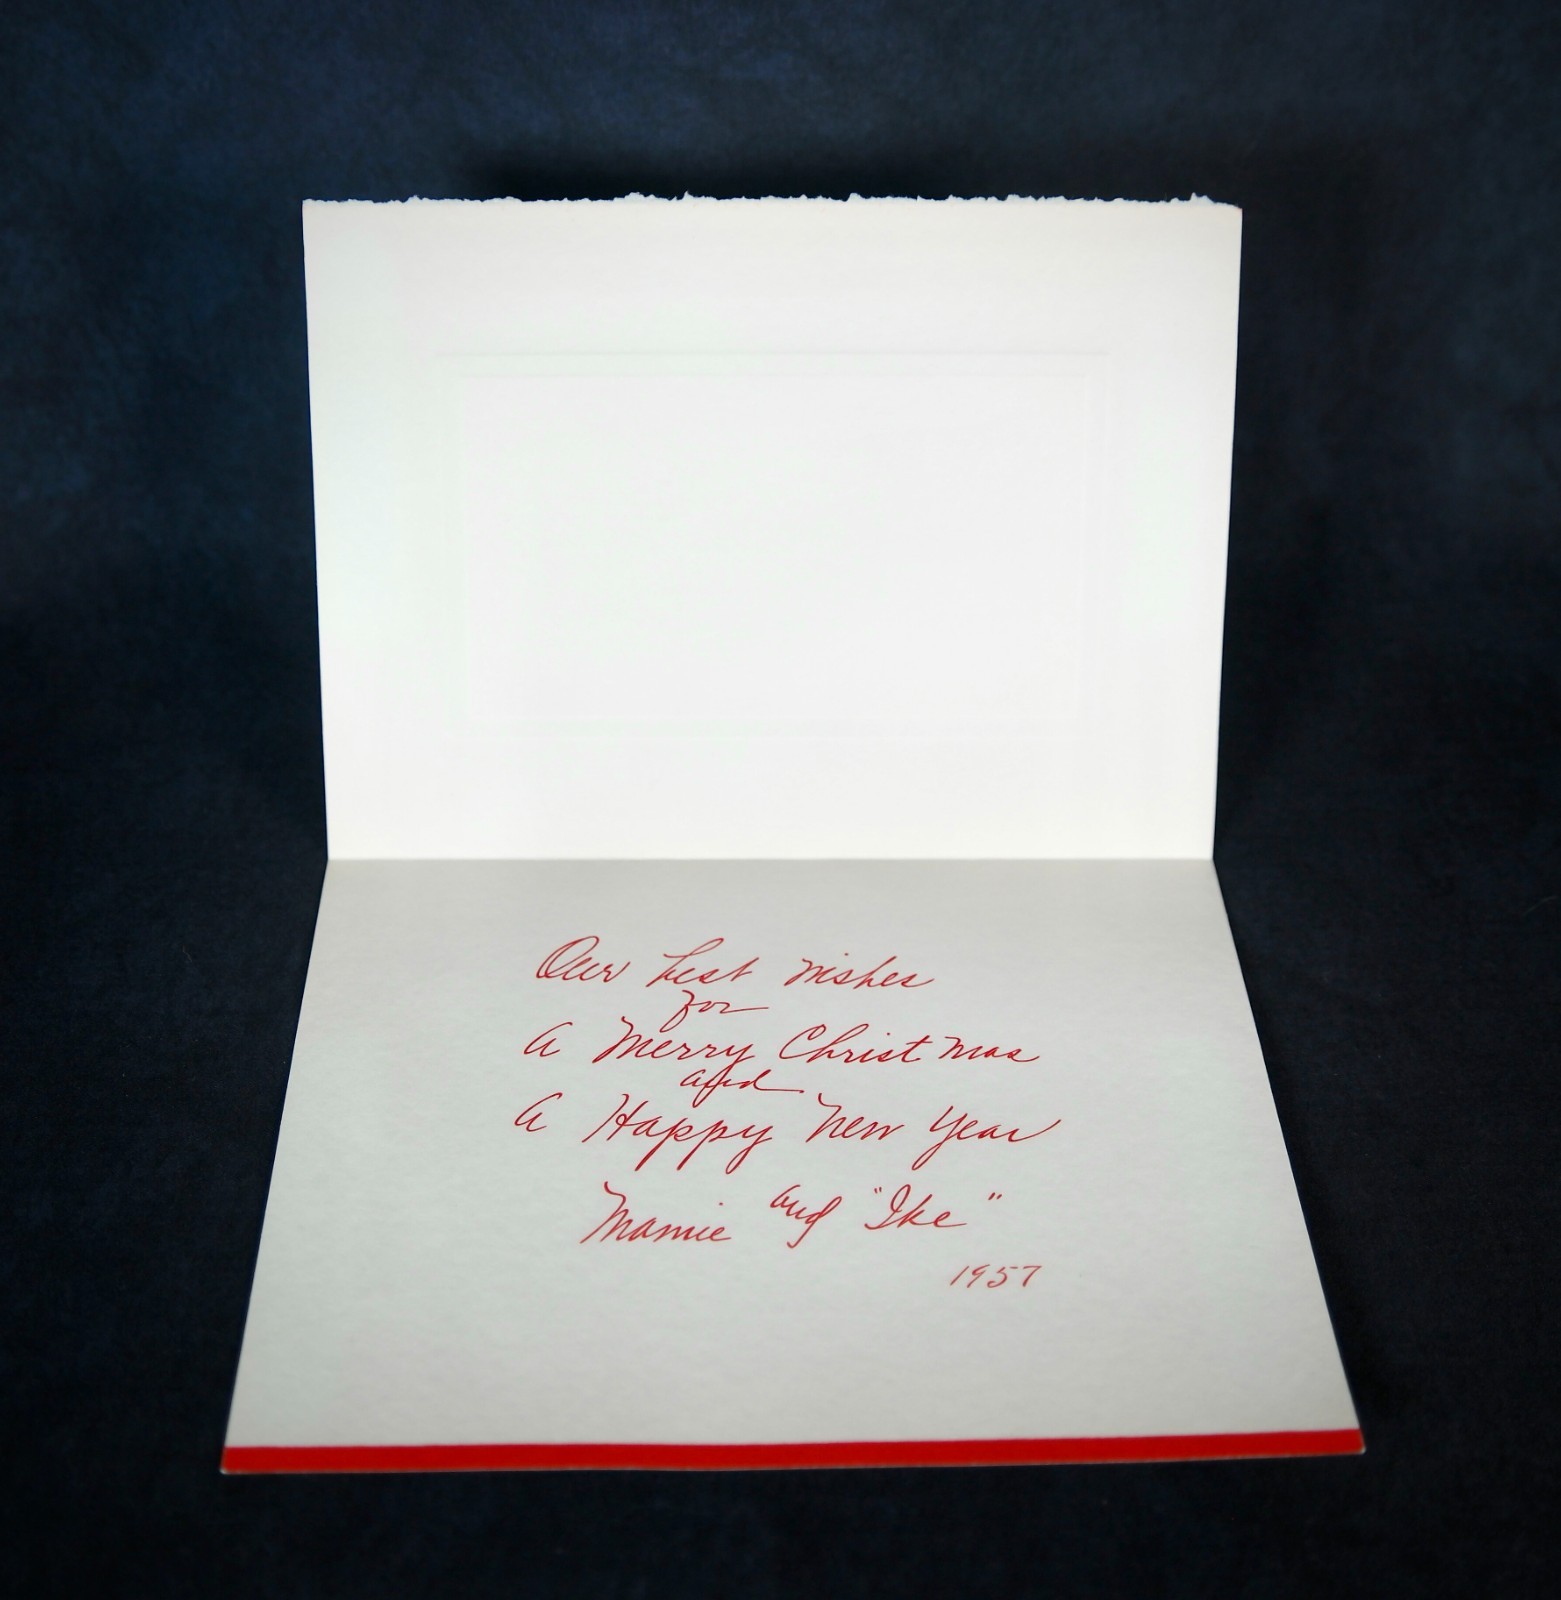 Our best wishes
for
A Merry Christmas
and
A Happy New Year
Mamie and "Ike"
1957